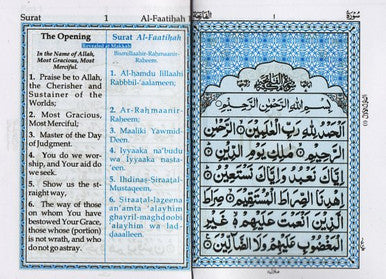 Surat 1 Al-Faatihah 1
The Opening
In the Name of Allah,
Most Gracious, Most
Merciful.
1. Praise be to Allah,
the Cherisher and
Sustainer of the
Worlds;
2. Most Gracious,
Most Merciful;
3. Master of the Day
of Judgment.
4. You do we wor-
ship, and Your aid do
we seek.
5. Show us the st-
raight way,
6. The way of those
on whom You have
bestowed Your Grace,
those whose (portion)
is not wrath, and who
do not go astray.
Surat Al-Faatihah
Revealed at Makkah
Bismillaahir-Rahmaanir-
Raheem.
1. Al-hamdu lillaahi
Rabbbil-'aalameen;
2. Ar-Rahmaanir-
Raheem;
3. Maaliki Yawmid-
Deen.
4. Iyyaaka na'budu
wa Iyyaaka nasta-
'een.
5. Ihdinas-Siraatal-
Mustaqeem,
6. Siraatal-lazeena
an'amta 'alayhim
ghayril-maghdoobi
'alayhim wa lad-
daaalleen.
بِسْمِ اللّٰهِ الرَّحْمٰنِ الرَّحِيْمِ
اَلْحَمْدُ لِلّٰهِ رَبِّ الْعٰلَمِيْنَ ۙ الرَّحْمٰنِ
الرَّحِيْمِ ۙ مٰلِكِ يَوْمِ الدِّيْنِ ؕ
اِيَّاكَ نَعْبُدُ وَاِيَّاكَ نَسْتَعِيْنُ ؕ
اِهْدِنَا الصِّرَاطَ الْمُسْتَقِيْمَ ۙ صِرَاطَ
الَّذِيْنَ اَنْعَمْتَ عَلَيْهِمْ ۙ غَيْرِ
الْمَغْضُوْبِ عَلَيْهِمْ وَلَا الضَّآلِّيْنَ